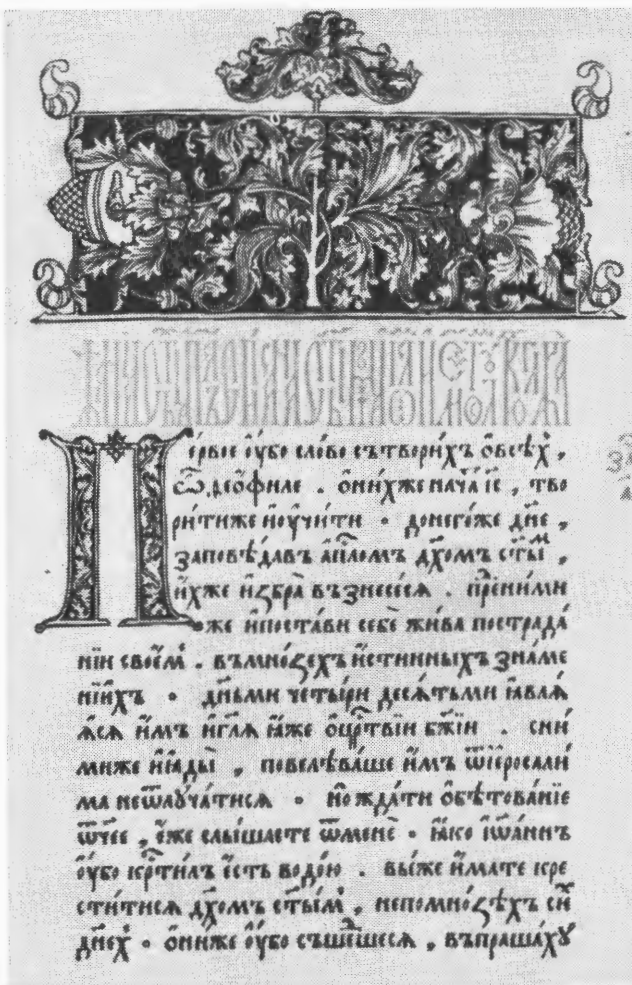 Первое ᲂу҆бо сло́во сътвори́хъ ѻ҆всѣ́хъ ,
Ѽ , ѳео́филе . ѡ҆ни́хже нача́ т і҃с , тво
ри́тиже и҆ᲂу҆чи́ти • донего́же дн҃е ,
заповѣ́дав а҆п҃лом дх҃омъ ст҃ы́ ,
и҆́хже и҆збра̀ възнесе́ся . прⷣе ни́ми
же и҆поста́ви себѐ жи́ва пострада́
нїи свое́мⸯ . въмно́ꙁехъ и҆́стинныхъ зна́ме
нїихъ • дньми четы́ри десѧ́тьми ꙗ҆влѧ́
ѧ҆ся и҆̀мъ и҆гл҃ѧ ꙗ҆́же ѻ҆црⷭ҇твїи бж҃їи . сни́
миже и҆ꙗды́ , повелѣва́ше и҆̀мъ ѿїеросали́
ма неѿлуча́тися • но жда́ти ѻ҆бѣтова́нїе
ѿчее , е҆́же слы́шасте ѿменѐ • ꙗ҆́ко і҆ѡа́ннъ
ᲂу҆́бо крⷭ҇ти́лъ є҆́сть водо́ю . вы́же и҆́мате кре
сти́тися дх҃омъ ст҃ы́мⸯ , непомно́ꙁѣхъ си́х
дне́хⸯ • ѻ҆ни́же ᲂу҆̀бо съше́дшеся , въпраша́хꙋ